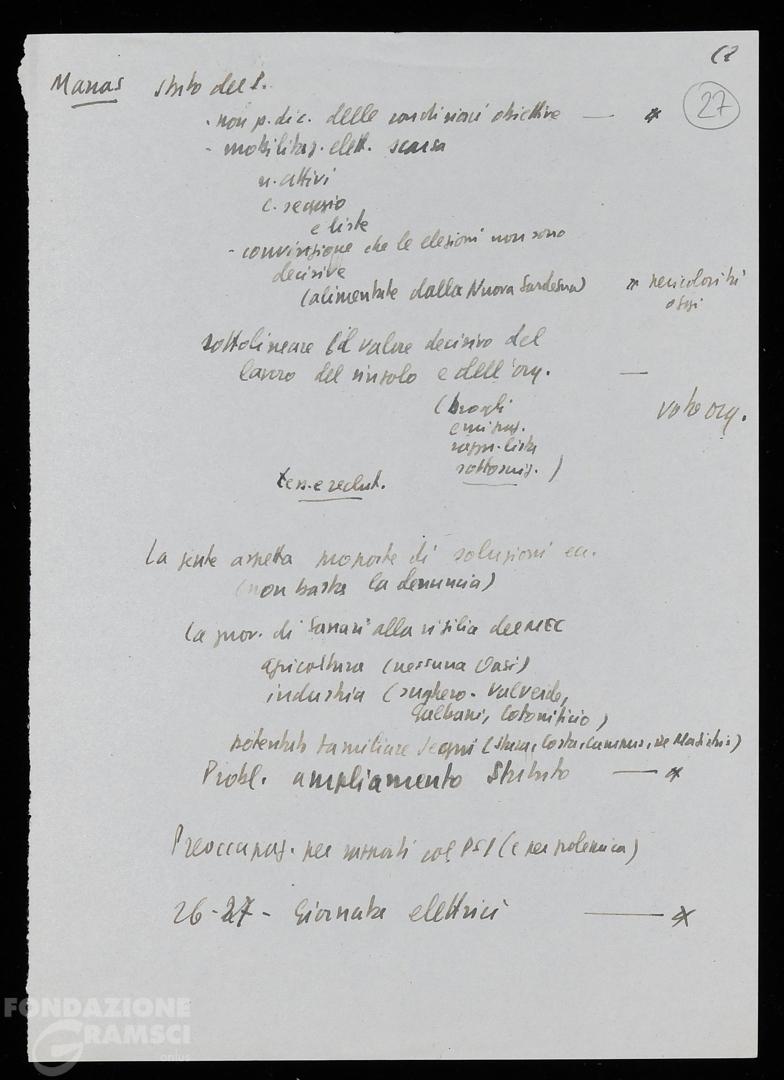 27
Marras stato del P.
- non p. dic. delle condizioni obiettive — *
- mobilitaz. elett. scarsa
n. attivi
c. seggio
e liste
- convinzione che le elezioni non sono
decisive
(alimentate dalla Nuova Sardegna) * pericolosità
oggi
sottolineare il valore decisivo del
lavoro del singolo e dell'org. —
(brogli
emigraz.
rappr. lista
sottoscriz.)
voto org.
tess. e reclut.
La gente aspetta proposte di soluzioni ecc.
(non basta la denuncia)
La prov. di Sassari alla vigilia del MEC
agricoltura (nessuna Oasi)
industria (sughero - Valverde,
Galbani, Cotonificio)
potentato familiare Segni ( Costa, Cammus, De Martinis)
Probl. ampliamento Statuto — *
Preoccupaz. per rapporti col PSI (e per polemica)
26-27 - Giornata elettrici — *
FONDAZIONE
GRAMSCI
onlus